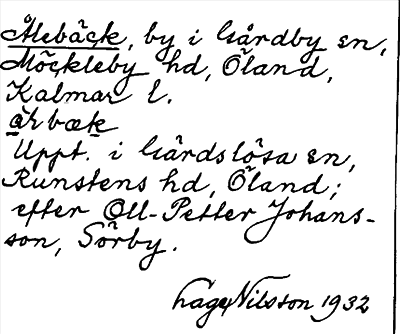 Ålebäck, by i Gårdby sn,
Möckleby hd, Öland,
Kalmar l.
Uppt. i Gårdslösa sn,
Runstens hd, Öland;
efter Oll-Petter Johans-
son, Sörby.
Hage Nilsson 1932